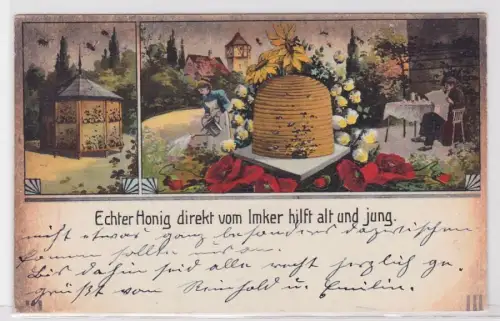 Echter Honig direkt vom Imker hilft alt und jung.
nicht etwas ganz besonders dazwischen
kommen sollte
Bis dahin seid alle recht herzlich ge-
grüßt von Reinhold u. Emilie.